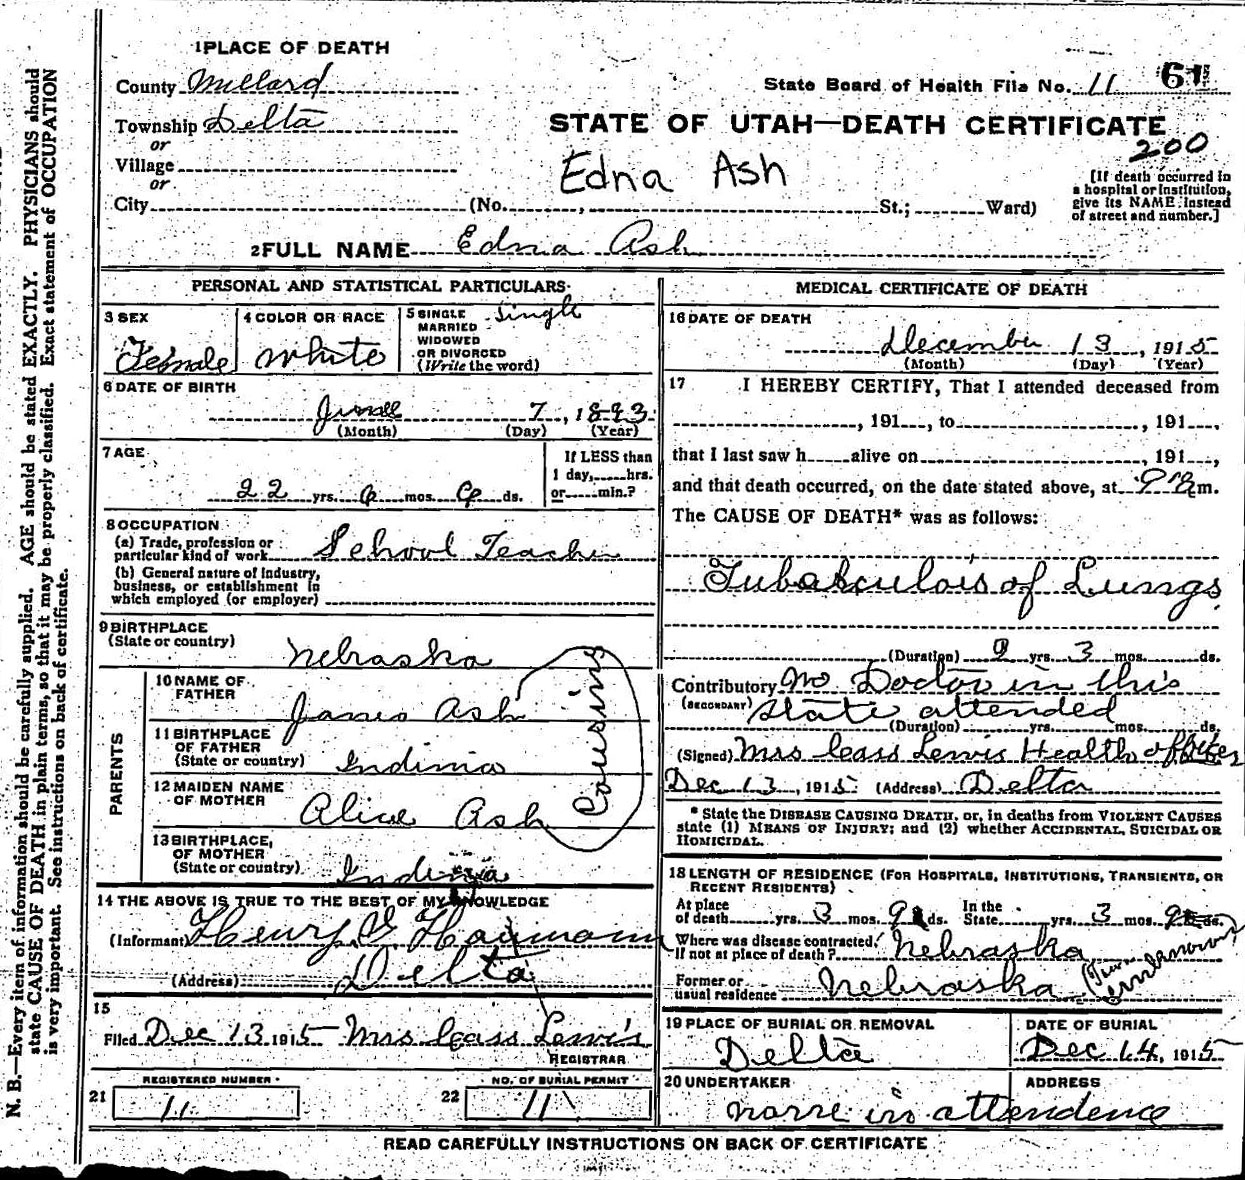 N. B.—Every item of information should be carefully supplied. AGE should be stated EXACTLY. PHYSICIANS should
state CAUSE OF DEATH in plain terms, so that it may be properly classified. Exact statement of OCCUPATION
is very important. See instructions on back of certificate.
1 PLACE OF DEATH
County Millard
State Board of Health File No. 11 61
Township Delta
STATE OF UTAH—DEATH CERTIFICATE
200
or
Village
or
Edna Ash
[If death occurred in
a hospital or institution,
give its NAME instead
of street and number.]
City (No. , St.; Ward)
2 FULL NAME Edna Ash
PERSONAL AND STATISTICAL PARTICULARS
3 SEX
Female
4 COLOR OR RACE
White
5 SINGLE
MARRIED
WIDOWED
OR DIVORCED
(Write the word)
Single
6 DATE OF BIRTH
June 7, 1893
(Month) (Day) (Year)
7 AGE
22 yrs. 6 mos. 6 ds.
If LESS than
1 day, hrs.
or min.?
8 OCCUPATION
(a) Trade, profession or
particular kind of work School Teacher
(b) General nature of Industry,
business, or establishment in
which employed (or employer)
9 BIRTHPLACE
(State or country)
Nebraska
PARENTS
10 NAME OF
FATHER
James Ash
11 BIRTHPLACE
OF FATHER
(State or country) Indina
12 MAIDEN NAME
OF MOTHER
Alice Ash
Cousins
13 BIRTHPLACE,
OF MOTHER
(State or country) Indina
14 THE ABOVE IS TRUE TO THE BEST OF MY KNOWLEDGE
(Informant Henry G. Haumann
(Address) Delta
15
Filed Dec 13 1915 Mrs Cass Lewis
REGISTRAR
21
REGISTERED NUMBER
11
22
NO. OF BURIAL PERMIT
11
MEDICAL CERTIFICATE OF DEATH
16 DATE OF DEATH
December 13, 1915
(Month) (Day) (Year)
17 I HEREBY CERTIFY, That I attended deceased from
, 191 , to , 191 ,
that I last saw h alive on , 191 ,
and that death occurred, on the date stated above, at m.
The CAUSE OF DEATH* was as follows:
Tubarculois of Lungs
(Duration) yrs. 3 mos. ds.
Contributory No Doctor in this
(SECONDARY) state attended
(Duration) yrs. mos. ds.
(Signed) Mrs Cass Lewis Health officer
Dec 13, 1915 (Address) Delta
* State the DISEASE CAUSING DEATH, or, in deaths from VIOLENT CAUSES
state (1) MEANS OF INJURY; and (2) whether ACCIDENTAL, SUICIDAL OR
HOMICIDAL.
18 LENGTH OF RESIDENCE (FOR HOSPITALS, INSTITUTIONS, TRANSIENTS, OR
RECENT RESIDENTS)
At place
of death yrs. 3 mos. 9 ds. In the
State yrs. 3 mos. 9 ds.
Where was disease contracted,
If not at place of death? Nebraska
Former or
usual residence Nebraska (Town unknown)
19 PLACE OF BURIAL OR REMOVAL
Delta
DATE OF BURIAL
Dec 14, 1915
20 UNDERTAKER
ADDRESS
none in attendence
READ CAREFULLY INSTRUCTIONS ON BACK OF CERTIFICATE